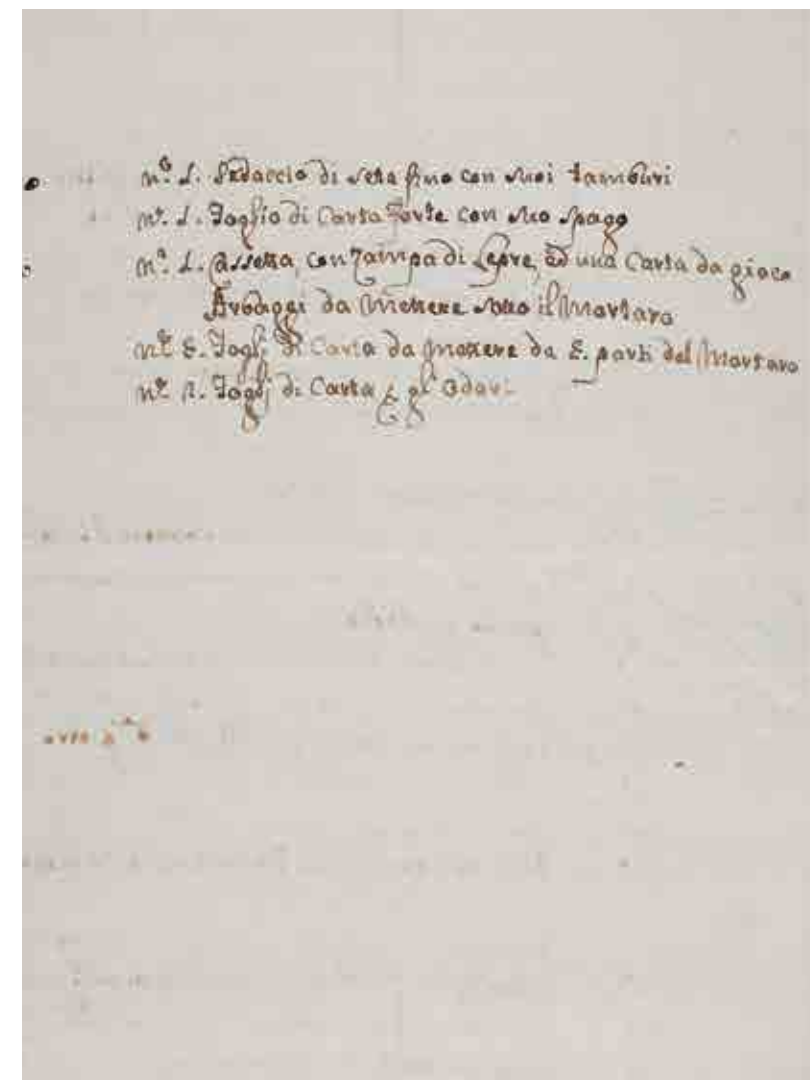 n.º 1. Sedaccio di seta fino con suoi tamburi
n.º 1. Foglio di Carta forte con suo spago
n.º 1. Cassetta, con Zampa di Lepre, ed una Carta da gioco
da mettere sotto il Mortaro
n.º 2. Foglj di Carta da mettere da 2. parti del Mortaro
n.º 2. Foglj di Carta p gl' Odori